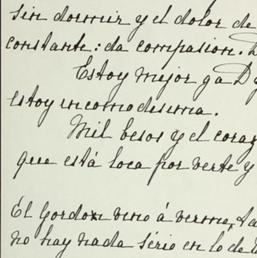 sin dormir y el dolor de
constante: da compasion.
Estoy mejor ya D
estoy incomodisima.
Mil besos y el coraz
que está loca por verte y
El Gordon vino á verme,
no hay nada sério en lo de